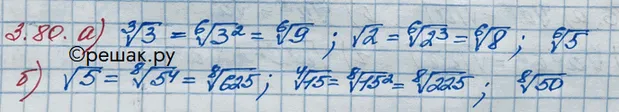 3.80. а) ∛3 = ⁶√3² = ⁶√9 ; √2 = ⁶√2³ = ⁶√8 ; ⁶√5
©решак.ру
б) √5 = ⁸√5⁴ = ⁸√625 ; ⁴√15 = ⁸√15² = ⁸√225 ; ⁸√50